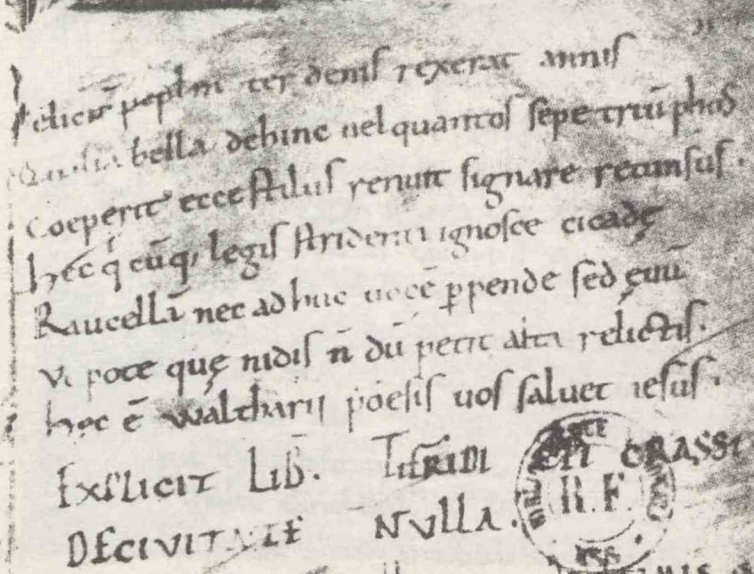 elicit̄ pοpl̄m ter denis rexerat annis
bella dehinc uel quantos sepe triūphos
Coeperit ecce stilus renuit signare retunsus.
hęc q̇cūq; legis stridenti ignosce cicadę
Raucellā nec adhuc uocē ꝑpende sed ęuū
Vt pote quę nidis n̄ dū petit alta relictis.
hęc ē waltharij poesis uos saluet iesus.
EXPLICIT LIB̄. TIFRIDI EPI CRASSI
DECIVITATE NVLLA.
R.F.